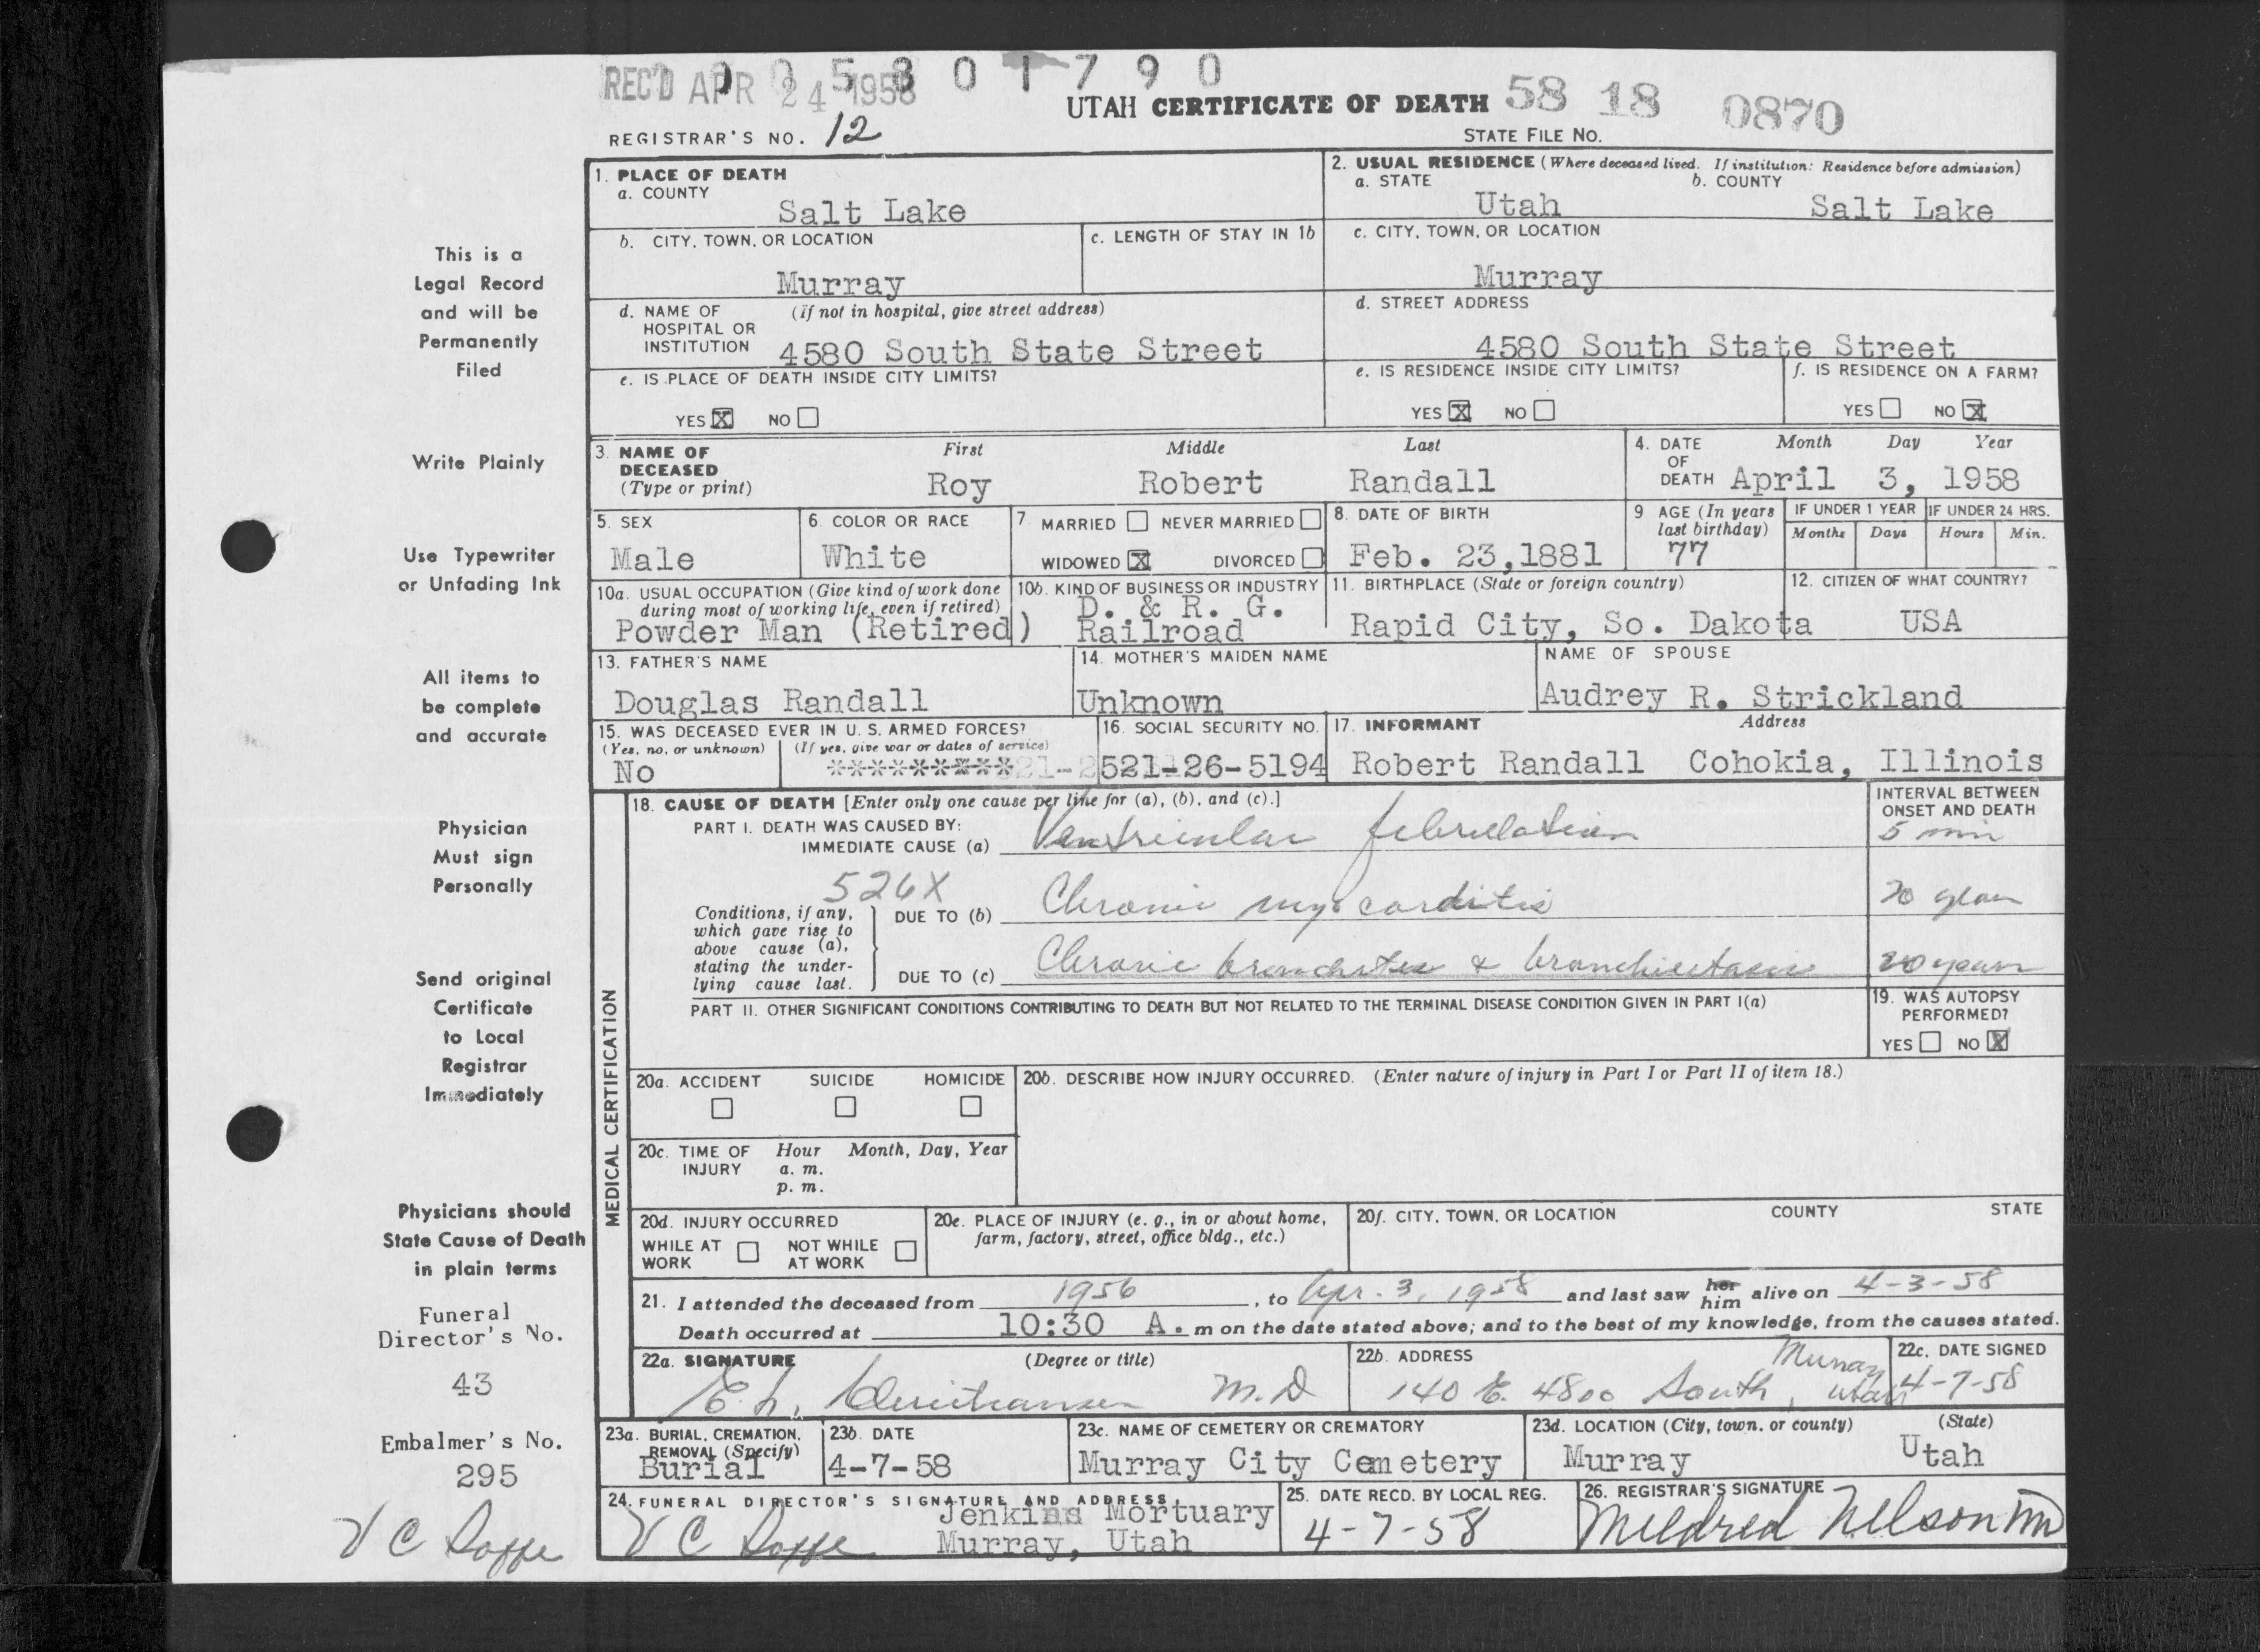 REC'D APR 24 1958
0 0 5 8 0 1 7 9 0
UTAH CERTIFICATE OF DEATH 58 18 0870
REGISTRAR'S NO. 12
STATE FILE NO.
1. PLACE OF DEATH
a. COUNTY
Salt Lake
2. USUAL RESIDENCE (Where deceased lived. If institution: Residence before admission)
a. STATE b. COUNTY
Utah Salt Lake
b. CITY, TOWN, OR LOCATION
Murray
c. LENGTH OF STAY IN 1b
c. CITY, TOWN, OR LOCATION
Murray
d. NAME OF (If not in hospital, give street address)
HOSPITAL OR
INSTITUTION 4580 South State Street
d. STREET ADDRESS
4580 South State Street
e. IS PLACE OF DEATH INSIDE CITY LIMITS?
YES X NO
e. IS RESIDENCE INSIDE CITY LIMITS?
YES X NO
f. IS RESIDENCE ON A FARM?
YES NO X
3. NAME OF First Middle Last
DECEASED
(Type or print) Roy Robert Randall
4. DATE Month Day Year
OF
DEATH April 3, 1958
5. SEX
Male
6. COLOR OR RACE
White
7 MARRIED NEVER MARRIED
WIDOWED X DIVORCED
8. DATE OF BIRTH
Feb. 23,1881
9 AGE (In years
last birthday)
77
IF UNDER 1 YEAR
Months Days
IF UNDER 24 HRS.
Hours Min.
10a. USUAL OCCUPATION (Give kind of work done
during most of working life, even if retired)
Powder Man (Retired)
10b. KIND OF BUSINESS OR INDUSTRY
D. & R. G.
Railroad
11. BIRTHPLACE (State or foreign country)
Rapid City, So. Dakota
12. CITIZEN OF WHAT COUNTRY?
USA
13. FATHER'S NAME
Douglas Randall
14. MOTHER'S MAIDEN NAME
Unknown
NAME OF SPOUSE
Audrey R. Strickland
15. WAS DECEASED EVER IN U. S. ARMED FORCES?
(Yes, no, or unknown) (If yes, give war or dates of service)
No **********
16. SOCIAL SECURITY NO.
521-26-5194
17. INFORMANT Address
Robert Randall Cohokia, Illinois
MEDICAL CERTIFICATION
18. CAUSE OF DEATH [Enter only one cause per line for (a), (b), and (c).]
INTERVAL BETWEEN
ONSET AND DEATH
PART I. DEATH WAS CAUSED BY:
IMMEDIATE CAUSE (a) Ventricular febrillation 5 min
526X
Conditions, if any,
which gave rise to
above cause (a),
stating the under-
lying cause last.
DUE TO (b) Chronic myocarditis 20 years
DUE TO (c) Chronic bronchitis & bronchiectasis 20 years
PART II. OTHER SIGNIFICANT CONDITIONS CONTRIBUTING TO DEATH BUT NOT RELATED TO THE TERMINAL DISEASE CONDITION GIVEN IN PART I(a)
19. WAS AUTOPSY
PERFORMED?
YES NO X
20a. ACCIDENT SUICIDE HOMICIDE
20b. DESCRIBE HOW INJURY OCCURRED. (Enter nature of injury in Part I or Part II of item 18.)
20c. TIME OF Hour Month, Day, Year
INJURY a. m.
p. m.
20d. INJURY OCCURRED
WHILE AT NOT WHILE
WORK AT WORK
20e. PLACE OF INJURY (e. g., in or about home,
farm, factory, street, office bldg., etc.)
20f. CITY, TOWN, OR LOCATION COUNTY STATE
21. I attended the deceased from 1956, to Apr. 3, 1958 and last saw her him alive on 4-3-58
Death occurred at 10:30 A. m on the date stated above; and to the best of my knowledge, from the causes stated.
22a. SIGNATURE (Degree or title)
E. L. Christiansen M.D
22b. ADDRESS
140 E. 4800 South, Murray Utah
22c. DATE SIGNED
4-7-58
23a. BURIAL, CREMATION,
REMOVAL (Specify)
Burial
23b. DATE
4-7-58
23c. NAME OF CEMETERY OR CREMATORY
Murray City Cemetery
23d. LOCATION (City, town, or county) (State)
Murray Utah
24. FUNERAL DIRECTOR'S SIGNATURE AND ADDRESS
V C
Jenkins Mortuary
Murray, Utah
25. DATE RECD. BY LOCAL REG.
4-7-58
26. REGISTRAR'S SIGNATURE
Mildred Nelson
This is a
Legal Record
and will be
Permanently
Filed
Write Plainly
Use Typewriter
or Unfading Ink
All items to
be complete
and accurate
Physician
Must sign
Personally
Send original
Certificate
to Local
Registrar
Immediately
Physicians should
State Cause of Death
in plain terms
Funeral
Director's No.
43
Embalmer's No.
295
V C